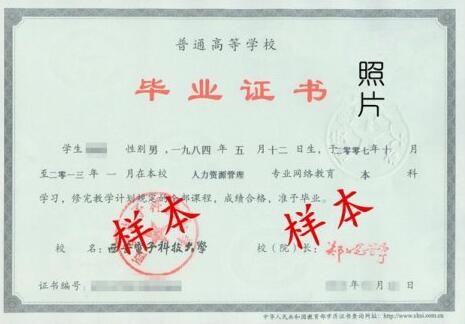 普通高等学校
毕业证书
照片
学生 性别男,一九八四年 五 月十二日生,于二〇〇七年十月
至二〇一三年 一 月在本校 人力资源管理 专业网络教育 本 科
学习,修完教学计划规定的全部课程,成绩合格,准予毕业。
样本
样本
校 名:西安电子科技大学 校(院)长:
证书编号:
年 月 日
中华人民共和国教育部学历证书查询网址:http://www.chsi.com.cn